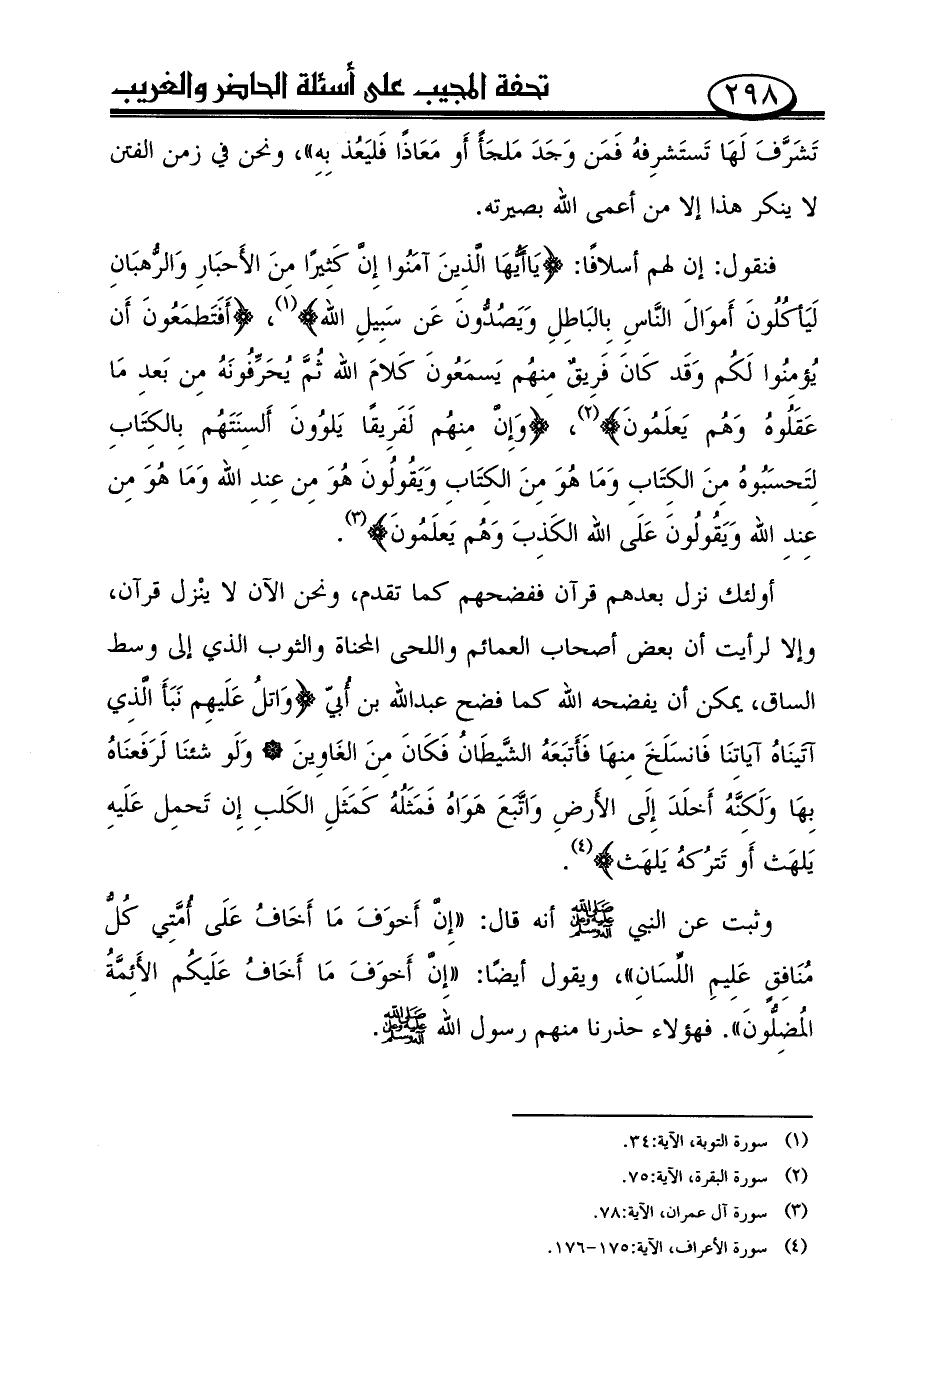 ٢٩٨ تحفة المجيب على أسئلة الحاضر والغريب
تَشَرَّفَ لَهَا تَستَشرِفهُ فَمَن وَجَدَ مَلجَأً أَو مَعَاذًا فَليَعُذ بِهِ»، ونحن في زمن الفتن
لا ينكر هذا إلا من أعمى الله بصيرته.
فنقول: إن لهم أسلافًا: ﴿يَاأَيُّهَا الَّذِينَ آمَنُوا إِنَّ كَثِيرًا مِنَ الأَحبَارِ وَالرُّهبَانِ
لَيَأكُلُونَ أَموَالَ النَّاسِ بِالبَاطِلِ وَيَصُدُّونَ عَن سَبِيلِ الله﴾(١)، ﴿أَفَتَطمَعُونَ أَن
يُؤمِنُوا لَكُم وَقَد كَانَ فَرِيقٌ مِنهُم يَسمَعُونَ كَلامَ الله ثُمَّ يُحَرِّفُونَهُ مِن بَعدِ مَا
عَقَلُوهُ وَهُم يَعلَمُونَ﴾(٢)، ﴿وَإِنَّ مِنهُم لَفَرِيقًا يَلوُونَ أَلسِنَتَهُم بِالكِتَابِ
لِتَحسَبُوهُ مِنَ الكِتَابِ وَمَا هُوَ مِنَ الكِتَابِ وَيَقُولُونَ هُوَ مِن عِندِ الله وَمَا هُوَ مِن
عِندِ الله وَيَقُولُونَ عَلَى الله الكَذِبَ وَهُم يَعلَمُونَ﴾(٣).
أولئك نزل بعدهم قرآن ففضحهم كما تقدم، ونحن الآن لا ينْزل قرآن،
وإلا لرأيت أن بعض أصحاب العمائم واللحى المحناة والثوب الذي إلى وسط
الساق، يمكن أن يفضحه الله كما فضح عبدالله بن أُبيّ ﴿وَاتلُ عَلَيهِم نَبَأَ الَّذِي
آتَينَاهُ آيَاتِنَا فَانسَلَخَ مِنهَا فَأَتبَعَهُ الشَّيطَانُ فَكَانَ مِنَ الغَاوِينَ ۞ وَلَو شِئنَا لَرَفَعنَاهُ
بِهَا وَلَكِنَّهُ أَخلَدَ إِلَى الأَرضِ وَاتَّبَعَ هَوَاهُ فَمَثَلُهُ كَمَثَلِ الكَلبِ إِن تَحمِل عَلَيهِ
يَلهَث أَو تَترُكهُ يَلهَث﴾(٤).
وثبت عن النبي ﷺ أنه قال: «إِنَّ أَخوَفَ مَا أَخَافُ عَلَى أُمَّتِي كُلُّ
مُنَافِقٍ عَلِيمِ اللِّسَانِ»، ويقول أيضًا: «إِنَّ أَخوَفَ مَا أَخَافُ عَلَيكُم الأَئِمَّةُ
المُضِلُّونَ». فهؤلاء حذرنا منهم رسول الله ﷺ.
(١) سورة التوبة، الآية:٣٤.
(٢) سورة البقرة، الآية:٧٥.
(٣) سورة آل عمران، الآية:٧٨.
(٤) سورة الأعراف، الآية:١٧٥-١٧٦.